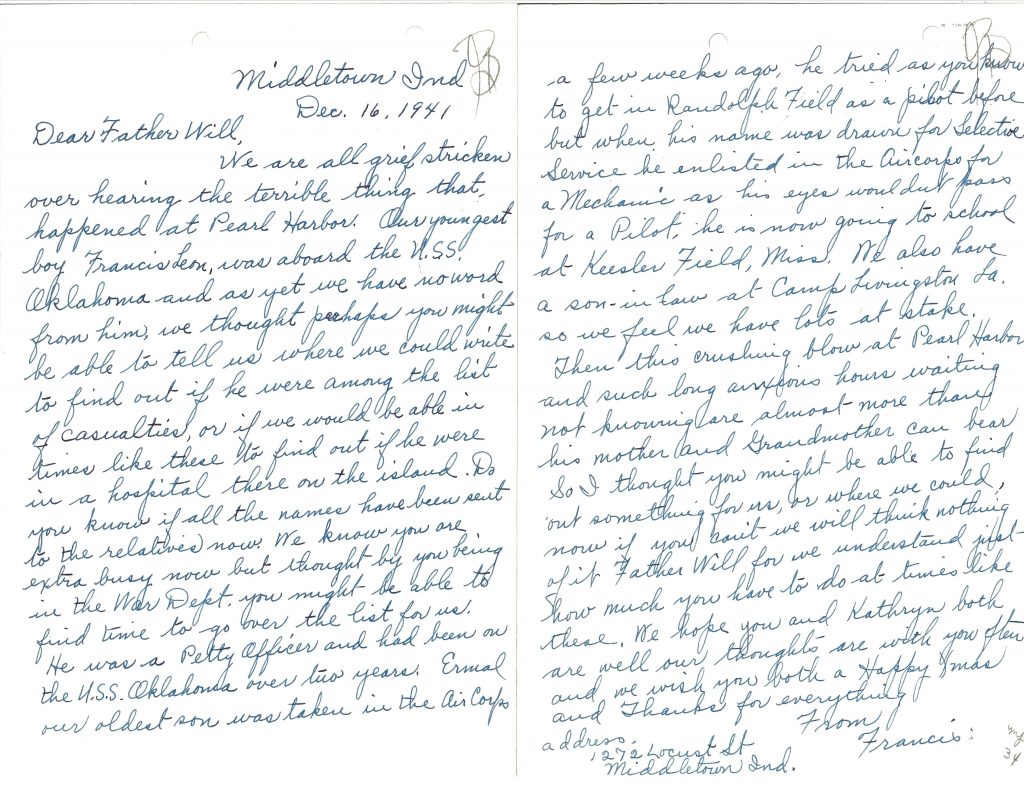 Middletown Ind
Dec. 16, 1941
Dear Father Will,
We are all grief stricken
over hearing the terrible thing that,
happened at Pearl Harbor. Our youngest
boy Francis Leon, was aboard the U.S.S.
Oklahoma and as yet we have no word
from him, we thought perhaps you might
be able to tell us where we could write
to find out if he were among the list
of casualties, or if we would be able in
times like these to find out if he were
in a hospital there on the island. Do
you know if all the names have been sent
to the relatives now. We know you are
extra busy now but thought by you being
in the War Dept. you might be able to
find time to go over the list for us.
He was a Petty Officer and had been on
the U.S.S. Oklahoma over two years. Ermal
our oldest son was taken in the Air Corps
a few weeks ago, he tried as you know
to get in Randolph Field as a pilot before
but when his name was drawn for Selective
Service he enlisted in the Aircorps for
a Mechanic as his eyes wouldnt pass
for a Pilot, he is now going to school
at Keesler Field, Miss. We also have
a son-in law at Camp Livingston La.
so we feel we have lots at stake.
Then this crushing blow at Pearl Harbor
and such long anxious hours waiting
not knowing are almost more than
his mother and Grandmother can bear
So I thought you might be able to find
out something for us, or where we could,
now if you cant we will think nothing
of it Father Will for we understand just
how much you have to do at times like
these. We hope you and Kathryn both
are well our thoughts are with you often
and we wish you both a Happy Xmas
and Thanks for everything
From
Francis:
address.
1272 Locust St
Middletown Ind.
34